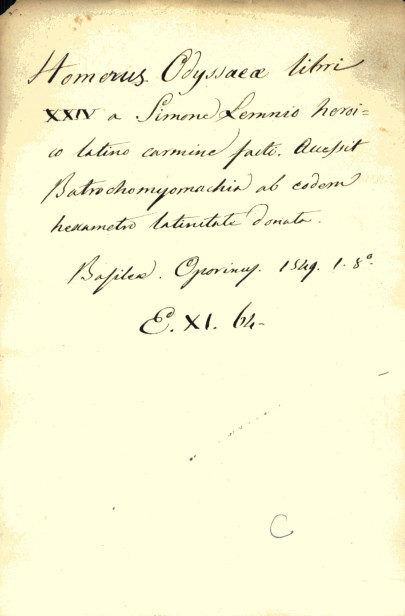 Homerus. Odyssaeæ libri
XXIV a Simone Lemnio heroi=
co latino carmine facti. Accessit
Batrochomyomachia ab eodem
hexametro latinitate donata.
Basileæ. Oporinus. 1549. 1. 8º.
E. XI. 64-
C